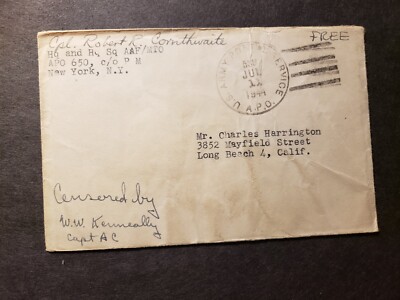 Cpl. Robert R. Cornthwaite
Hq and Hq Sq AAF/MTO
APO 650, c/o P M
New York, N.Y.
FREE
U.S. ARMY POSTAL SERVICE
JUN
11
1944
A.P.O.
Mr. Charles Harrington
3852 Mayfield Street
Long Beach 4, Calif.
Censored by
W.W. Kenneally
Capt AC